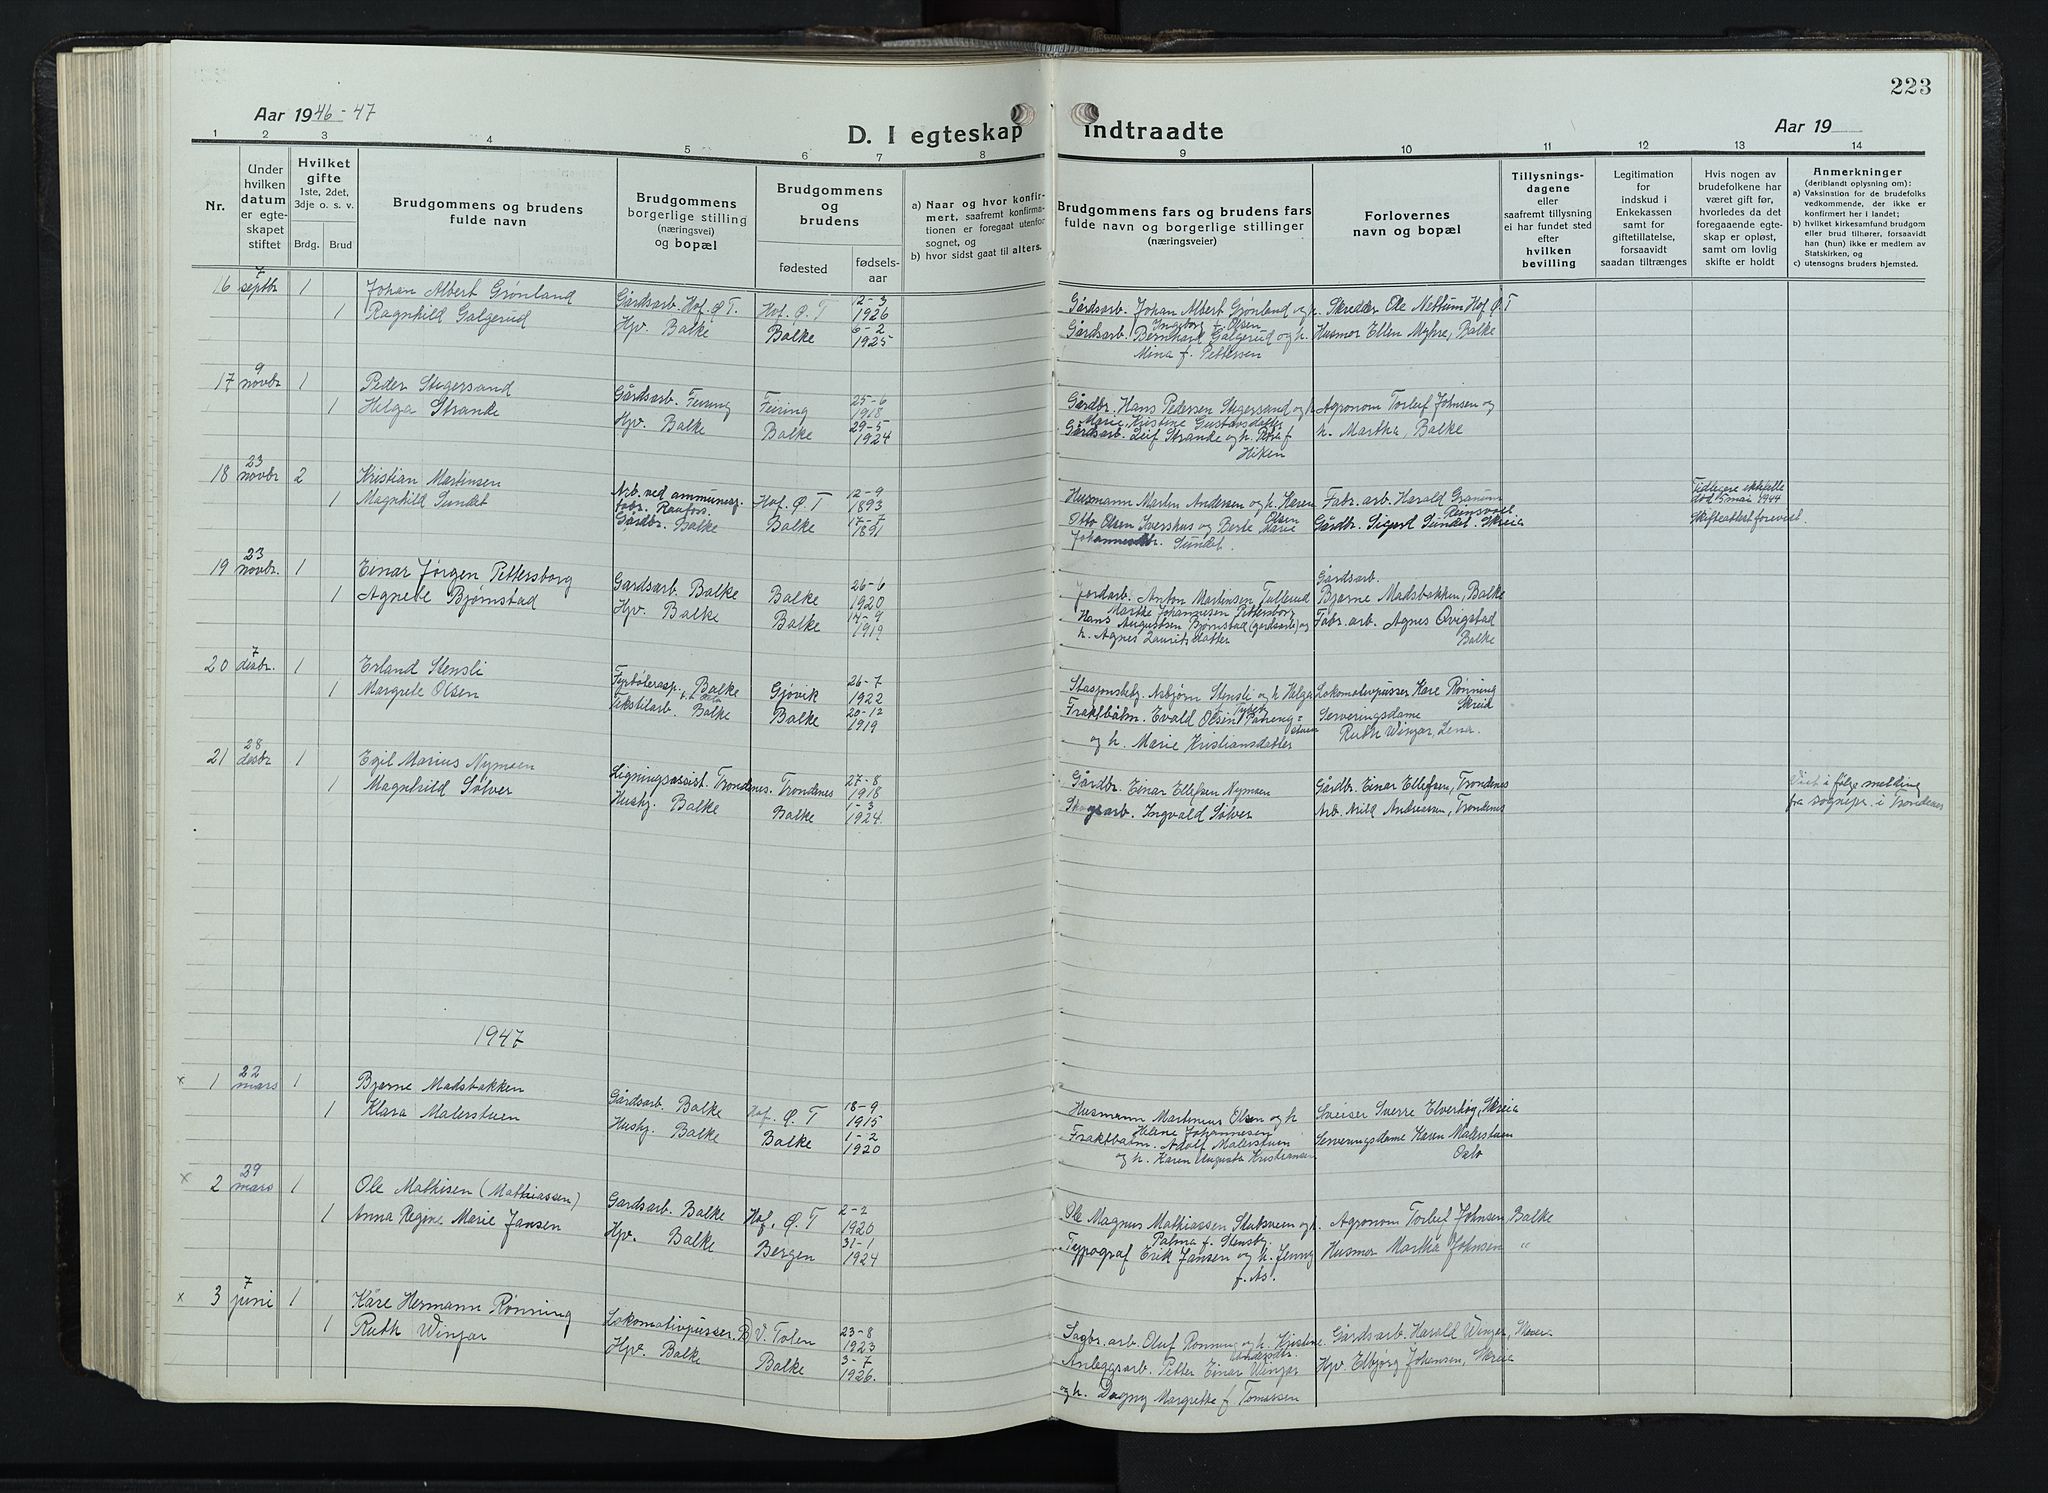 223
Aar 1946-47
D. I egteskap indtraadte
Aar 19
1 2 3 4 5 6 7 8 9 10 11 12 13 14
Nr.
Under hvilken datum er egteskapet stiftet
Hvilket gifte
1ste, 2det, 3dje o. s. v.
Brdg. Brud
Brudgommens og brudens fulde navn
Brudgommens borgerlige stilling (næringsvei) og bopæl
Brudgommens og brudens
fødested
fødselsaar
a) Naar og hvor konfirmert, saafremt konfirmationen er foregaat utenfor sognet, og
b) hvor sidst gaat til alters.
Brudgommens fars og brudens fars fulde navn og borgerlige stillinger (næringsveier)
Forlovernes navn og bopæl
Tillysningsdagene eller saafremt tillysning ei har fundet sted efter hvilken bevilling
Legitimation for indskud i Enkekassen samt for giftetillatelse, forsaavidt saadan tiltrænges
Hvis nogen av brudefolkene har været gift før, hvorledes da det foregaaende egteskap er opløst, samt om lovlig skifte er holdt
Anmerkninger
(deriblandt oplysning om):
a) Vaksination for de brudefolks vedkommende, der ikke er konfirmert her i landet;
b) hvilket kirkesamfund brudgom eller brud tilhører, forsaavidt han (hun) ikke er medlem av Statskirken, og
c) utensogns bruders hjemsted.
16 7 septbr 1 Johan Albert Grønland Gårdsarb. Hof. Ø. T. Hof. Ø. T 12-3 1926 Gårdsarb. Johan Albert Grønland og h. Ingeborg f. Olsen Skredder Ole Nettum Hof Ø. T
1 Ragnhild Galgerud Hpv. Balke Balke 6-2 1925 Gårdsarb. Bernhard Galgerud og h. Mina f. Pettersen Husmor Ellen Myhre, Balke
17 9 novbr 1 Peder Stigersand Gårdsarb. Feiring Feiring 25-6 1918 Gårdbr. Hans Pedersen Stigersand og h. Marie Kristine Gustavsdatter Agronom Torleif Johnsen og
1 Helga Strande Hpv. Balke Balke 29-5 1924 Gårdsarb. Leif Strande og h. Petra f. Hiken h. Martha, Balke
18 23 novbr 2 Kristian Martinsen Arb. ved ammunasj. fabr. Raufoss. Hof. Ø. T 12-9 1893 Husmann Martin Andersen og h. Karen Olsen Fabr. arb. Harald Granum Reinsvoll Tidligere ektefelle død 5 mai 1944
1 Magnhild Sundet Gårdbr. Balke Balke 17-7 1891 Otto Olsen Ivershus og Berte Marie Johannesdtr. Sundet. Gårdbr. Sigurd Sundet. Skreia Skifteattest forevist.
19 23 novbr. 1 Einar Jørgen Pettersborg Gardsarb. Balke Balke 26-6 1920 Jordarb. Anton Martinsen Tallerud Marthe Johannesen Pettersborg Gårdsarb. Bjarne Madsbakken, Balke
1 Agnete Bjørnstad Hpv. Balke Balke 17-9 1919 Hans Augustsen Bjørnstad (gardsarb.) og h. Agnes Lauritsdatter Fabr. arb. Agnes Qvigstad Balke
20 7 desbr. 1 Erland Stensli Fyrbøterasp., Balke Gjøvik 26-7 1922 Stasjonsbetj. Asbjørn Stensli og h Helga Lokomotivpusser Kåre Rønning Skreia
1 Margrete Olsen Tekstilarb. Balke Balke 20-12 1919 Fraktbåtm. Evald Olsen og h. Marie Kristiansdatter Serveringsdame Ruth Winjar, Lena.
21 28 desbr 1 Egil Marius Nymoen Ligningsassist. Trondenes. Trondenes 27-8 1918 Gårdbr. Einar Ellefsen Nymoen Gårdbr. Einar Ellefsen, Trondenes Viet i følge melding
1 Magnhild Sølver Hushj. Balke Balke 1-3 1924. Skogsarb. Ingvald Sølver Arb. Arild Andreassen, Trondenes fra sognepr. i Trondenes
1947
x 1 22 mars 1 Bjarne Madsbakken Gårdsarb. Balke Hof. Ø. T 18-9 1915 Husmann Martinius Olsen og h Helene Johannesen Sveiser Sverre Elverhøy, Skreia
1 Klara Malerstuen Hushj. Balke Balke 1-2 1920 Fraktbåtm. Adolf Malerstuen og h. Karen Augusta Kristiansen Serveringsdame Karen Malerstuen Oslo
x 2 29 mars 1 Ole Mathisen (Mathiassen) Gardsarb. Balke Hof. Ø. T 2-2 1920 Ole Magnus Mathiassen Stubsveen og h. Palma f. Stensby. Agronom Torleif Johnsen, Balke
1 Anna Regine Marie Jansen Hpv. Balke Bergen 31-1 1924 Typograf Erik Jansen og h. Jenny f. As. Husmor Martha Johnsen "
x 3 7 juni 1 Kåre Hermann Rønning Lokomotivpusser. B V. Toten 23-8 1923 Sagbr. arb. Oluf Rønning og h. Kristine Andersdtr. Gårdsarb. Harald Winjar, Skreia
1 Ruth Winjar Hpv. Balke Balke 3-7 1926. Anleggsarb. Petter Einar Winjar og h. Dagny Margrethe f Tomassen Hpv. Elbjørg Johansen, Skreia